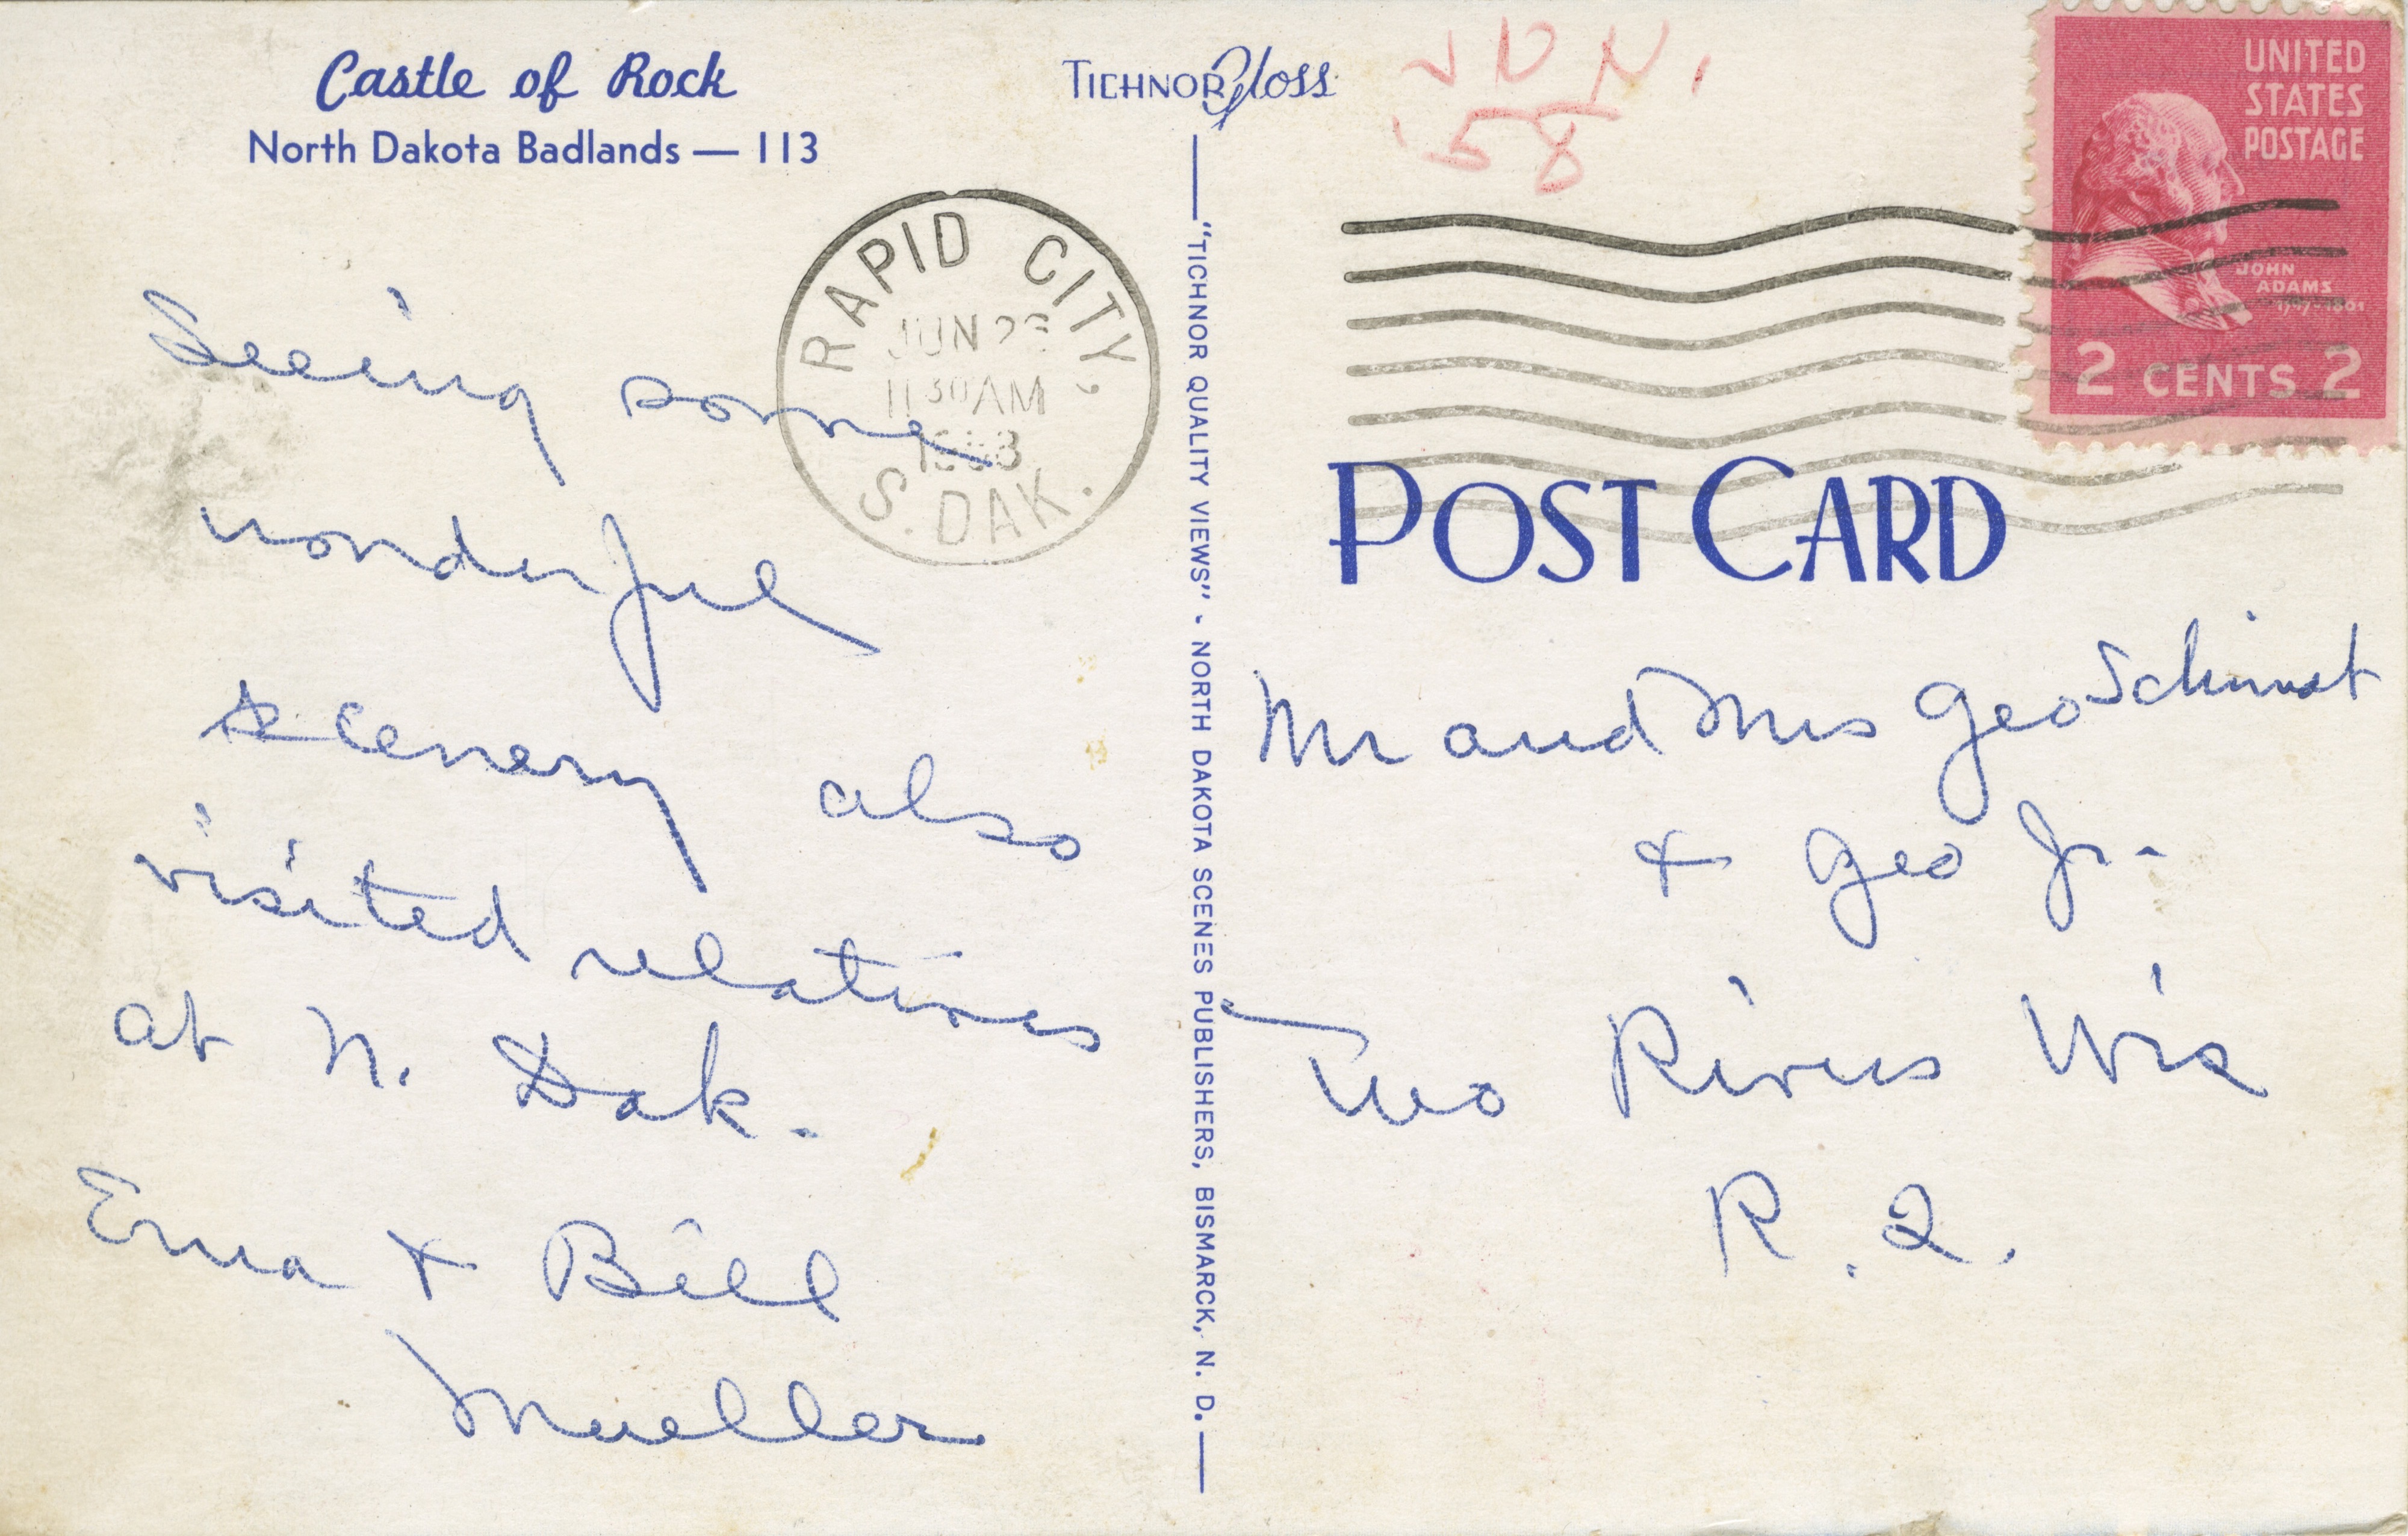 Castle of Rock
North Dakota Badlands — 113
TICHNOR Gloss
JUN.
'58
UNITED
STATES
POSTAGE
JOHN
ADAMS
1797-1801
2 CENTS 2
RAPID CITY,
JUN
11 30 AM
1958
S. DAK.
Seeing some
wonderful
scenery also
visited relatives
at N. Dak.
Erna & Bill
Mueller
"TICHNOR QUALITY VIEWS" - NORTH DAKOTA SCENES PUBLISHERS, BISMARCK, N. D.
POST CARD
Mr and Mrs Geo
& Geo Jr-
Two Rivers Wis
R. 2.